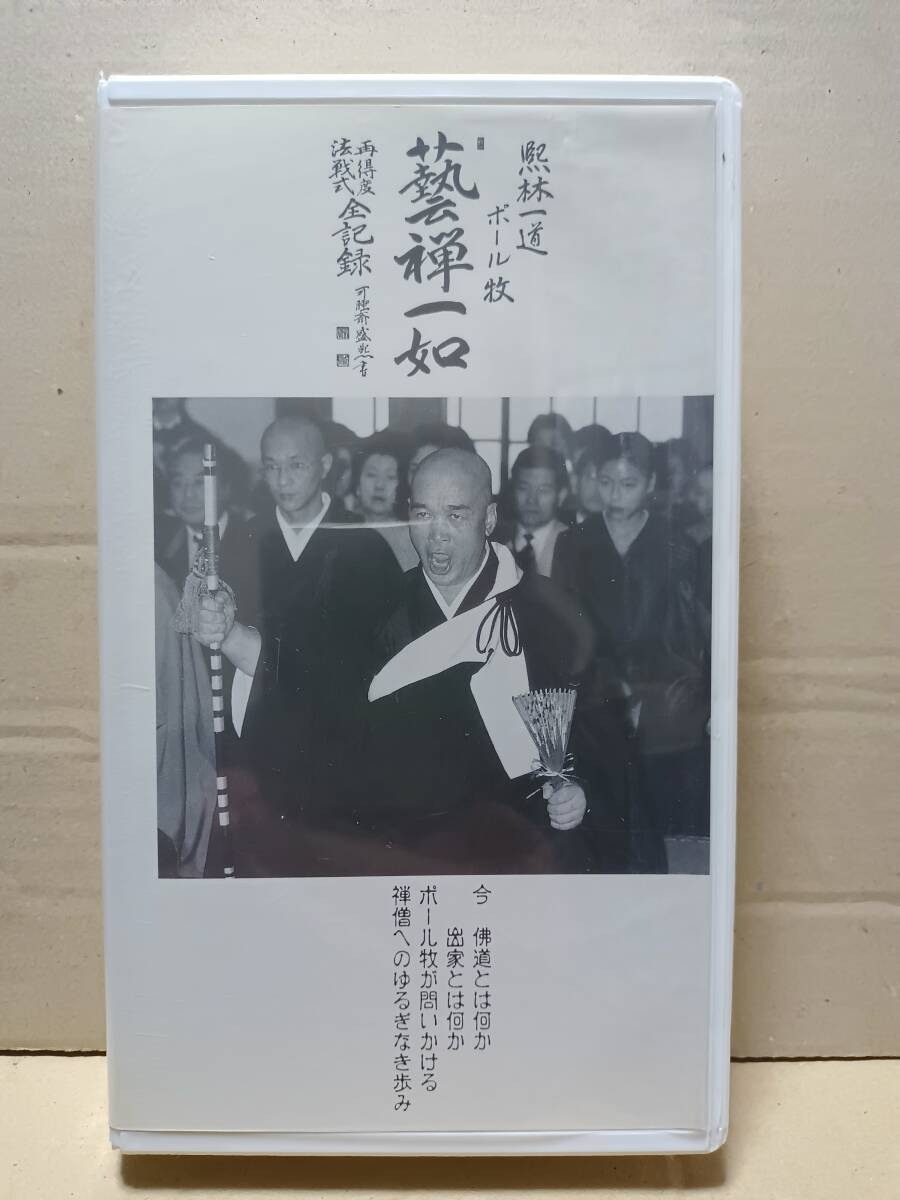 熙林一道
ポール牧
藝禅一如
再得度
法戦式
全記録
今 佛道とは何か
出家とは何か
ポール牧が問いかける
禅僧へのゆるぎなき歩み